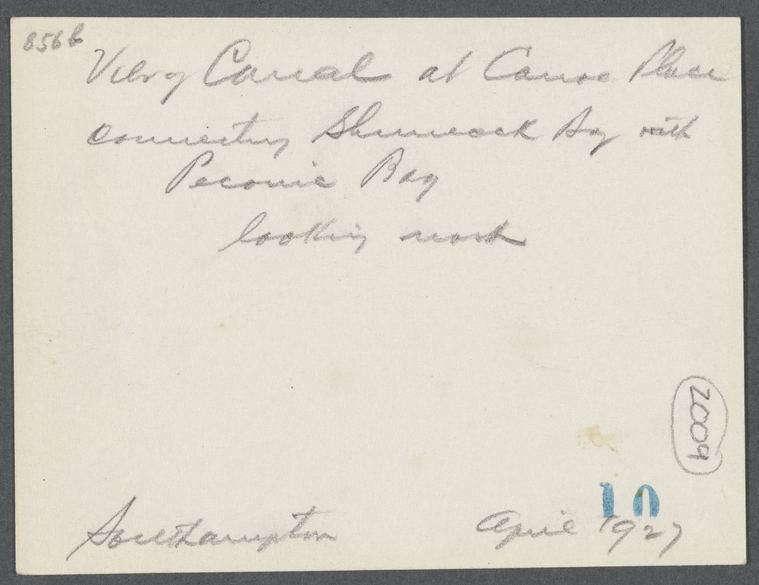 856b
View of Canal at Canoe Place
connecting Shinnecock Bay with
Peconic Bay
looking north
2009
10
Southampton April 1927